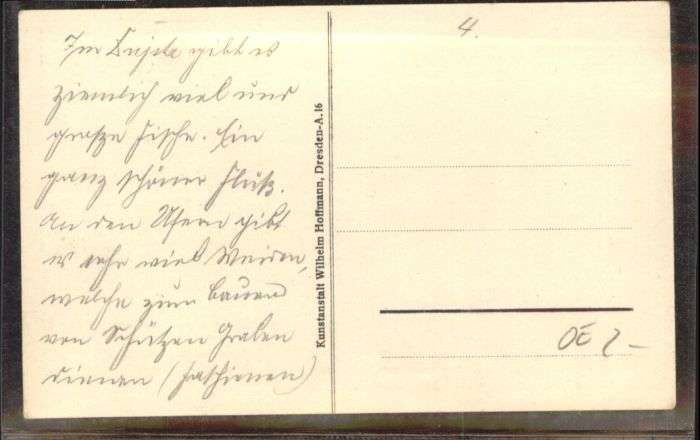 4.
Im gibt es
ziemlich viel und
große Fische. Ein
ganz schöner Fluß.
An den Ufern gibt
es sehr viel Weiden,
welche zum bauen
von Schützen Graben
dienen (Faschienen)
Kunstanstalt Wilhelm Hoffmann, Dresden-A. 16